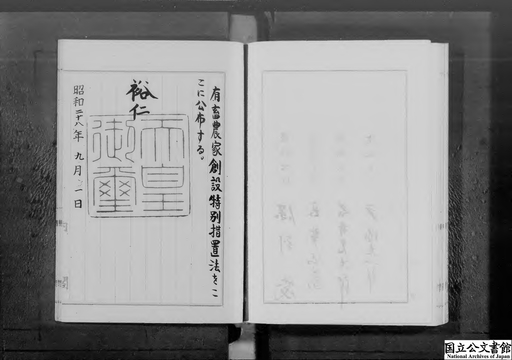 有畜農家創設特別措置法をこ
こに公布する。
裕仁
天皇
御璽
昭和二十八年九月一日
国立公文書館
National Archives of Japan